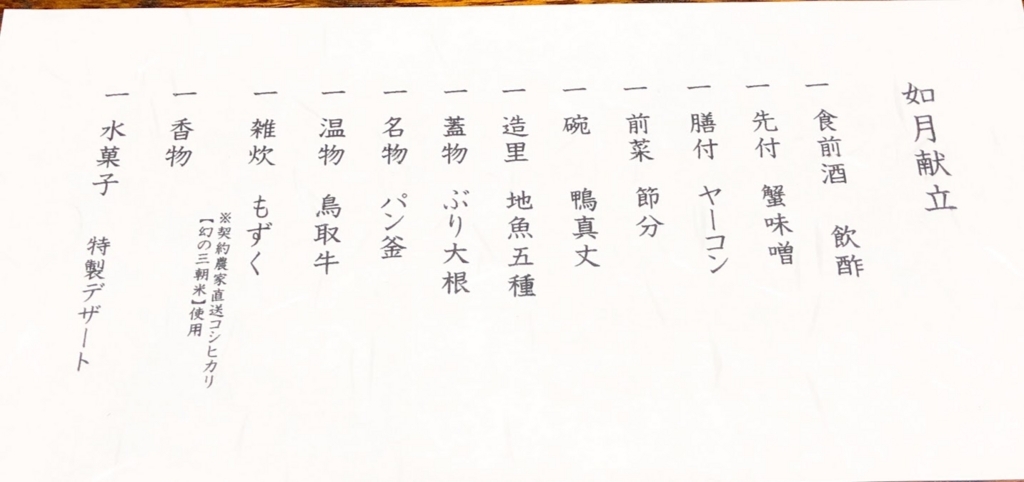 如月献立
一 食前酒 飲酢
一 先付 蟹味噌
一 膳付 ヤーコン
一 前菜 節分
一 碗 鴨真丈
一 造里 地魚五種
一 蓋物 ぶり大根
一 名物 パン釜
一 温物 鳥取牛
一 雑炊 もずく
※契約農家直送コシヒカリ
【幻の三朝米】使用
一 香物
一 水菓子 特製デザート